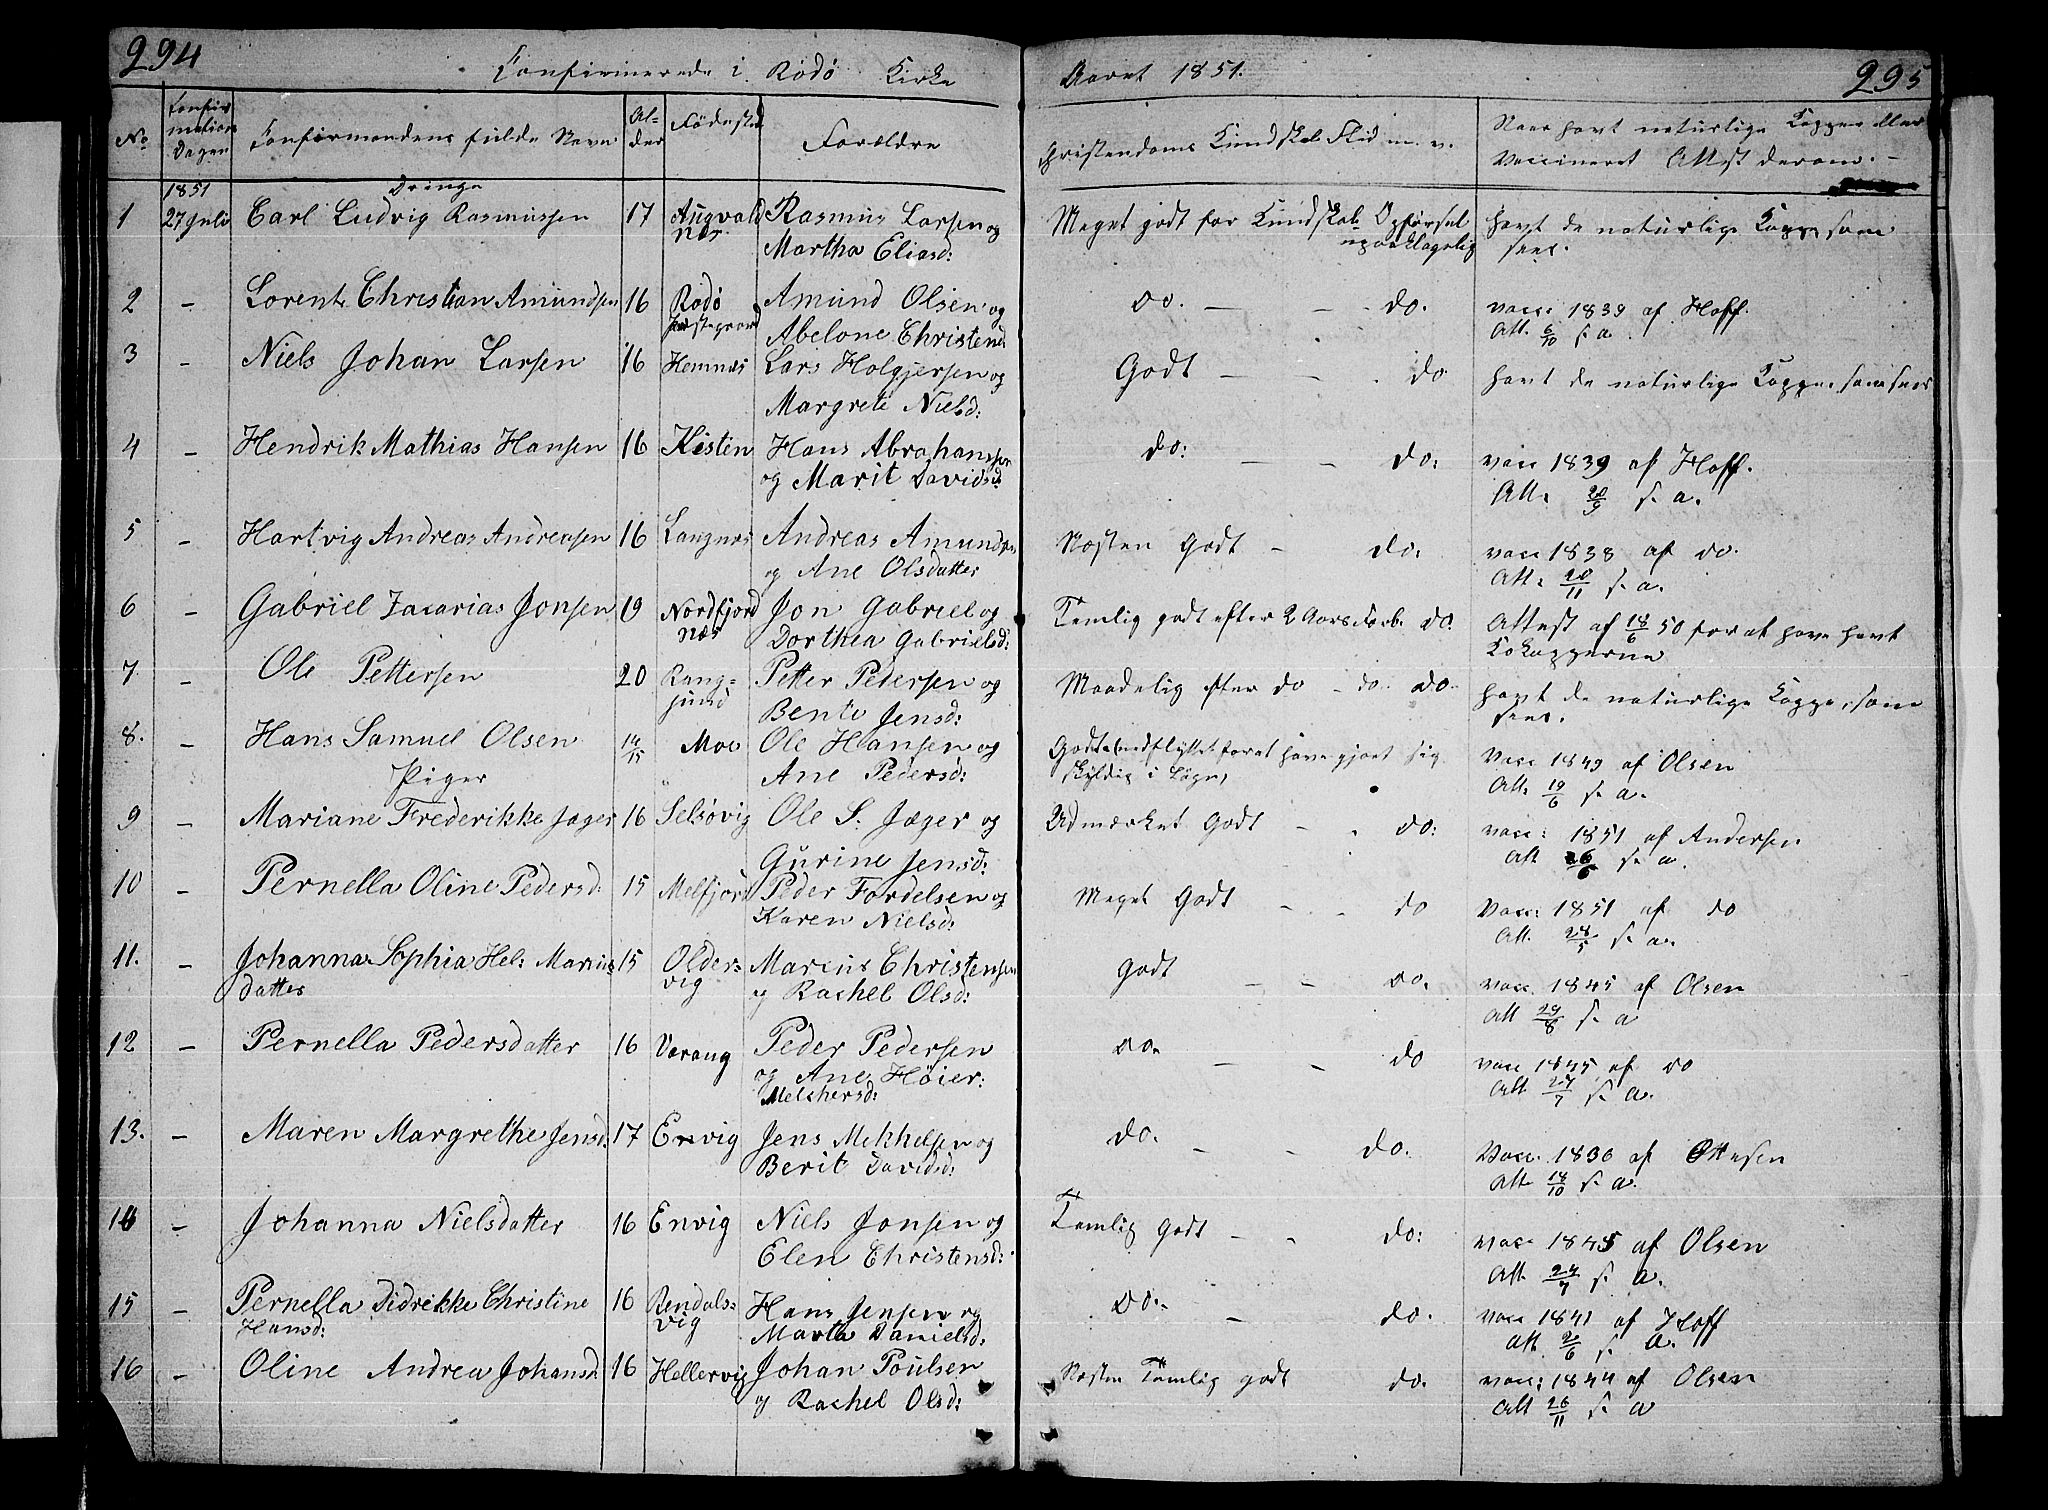 294
Confirmerede i Rödö Kirke
Aaret 1851.
295
No
Confir
mations
Dagen
Confirmandens fulde Navn
Al-
der
Födested
Forældre
Christendoms Kundskab Flid m. v.
Naar havt naturlige Kopper eller
Vaccineret Attest derom. -
1851
Drenge
1 27 Juli Carl Ludvig Rasmussen 17 Augvald Rasmus Larsen og Meget godt for Kundskab Opförsel havt de naturlige Kopper som
nes Martha Eliasd: upaaklagelig sees.
2 - Lorents Christian Amundsen 16 Rödö Amund Olsen og Do. - - do. vacc: 1839 af Hoff.
Præstegaard Abelone Christensd: Att. 6/10 s. a.
3 - Niels Johan Larsen 16 Hemnæs Lars Holgjersen og Godt - - do havt de naturlige Kopper, som sees
Margrete Nielsd:
4 - Hendrik Mathias Hansen 16 Kisten Hans Abrahamsen do: - - do: vacc 1839 af Hoff.
og Marit Davidsd: Att. 20/9 s. a.
5 - Hartvig Andreas Andreasen 16 Langnes Andreas Amundsen Næsten Godt - do: vacc 1838 af do.
og Ane Olsdatter Att: 20/11 s. a.
6 - Gabriel Zacarias Jonsen 19 Nordfjord Jon Gabriel og Temlig godt efter 2 Aars Forb. do. Attest af 18/6 50 for at have havt
næs Dorthea Gabrielsd: Kokopperne
7. - Ole Pettersen 20 Rang- Petter Pedersen og Maadelig efter do - do. do. havt de naturlige Kopper, som
sund Bente Jensd: sees.
8. - Hans Samuel Olsen 14/15 Moe Ole Hansen og Godt for at have gjort sig vacc 1849 af Olsen
Piger Ane Pedersd: skyldig i Løgn, Att: 19/6 s. a.
9 - Mariane Frederikke Jæger 16 Selsövig Ole S. Jæger og Udmærket Godt - - do: vacc: 1851 af Andersen
Gurine Jensd: Att 26/6 s. a.
10 - Pernella Oline Pedersd: 15 Melfjord Peder Fordelsen og Meget Godt - - do Vacc: 1851 af do
Karen Nielsd: Att. 28/5 s. a.
11. - Johanna Sophia Hel: Marcus 15 Olders- Marcus Christensen Godt - - do. vacc. 1845 af Olsen
datter vig og Rachel Olsd: Att 29/8 s. a
12 - Pernella Pedersdatter 16 Værang Peder Pedersen do. - - do vacc 1845 af do
og Ane Höier: Att 27/7 s. a.
Melchersd:
13. - Maren Margrethe Jensd: 17 Envig Jens Mikkelsen og do. - - do. Vacc. 1836 af Ottesen
Berit Davidsd: Att 18/10 s. a.
14 - Johanna Nielsdatter 16 Envig Niels Jonsen og Temlig godt - - do: vacc 1845 af Olsen
Elen Christensd: Att. 24/7 s. a.
15 - Pernella Didrikke Christine 16 Rendals- Hans Jensen og do.- - do. vacc 1841 af Hoff
Hansd: vig Marta Danielsd: Att 2/6 s. a.
16 - Oline Andrea Johansd 16 Hellervig Johan Poulsen Næsten Temlig godt do. vacc: 1844 af Olsen
og Rachel Olsd: Att 26/11 s. a